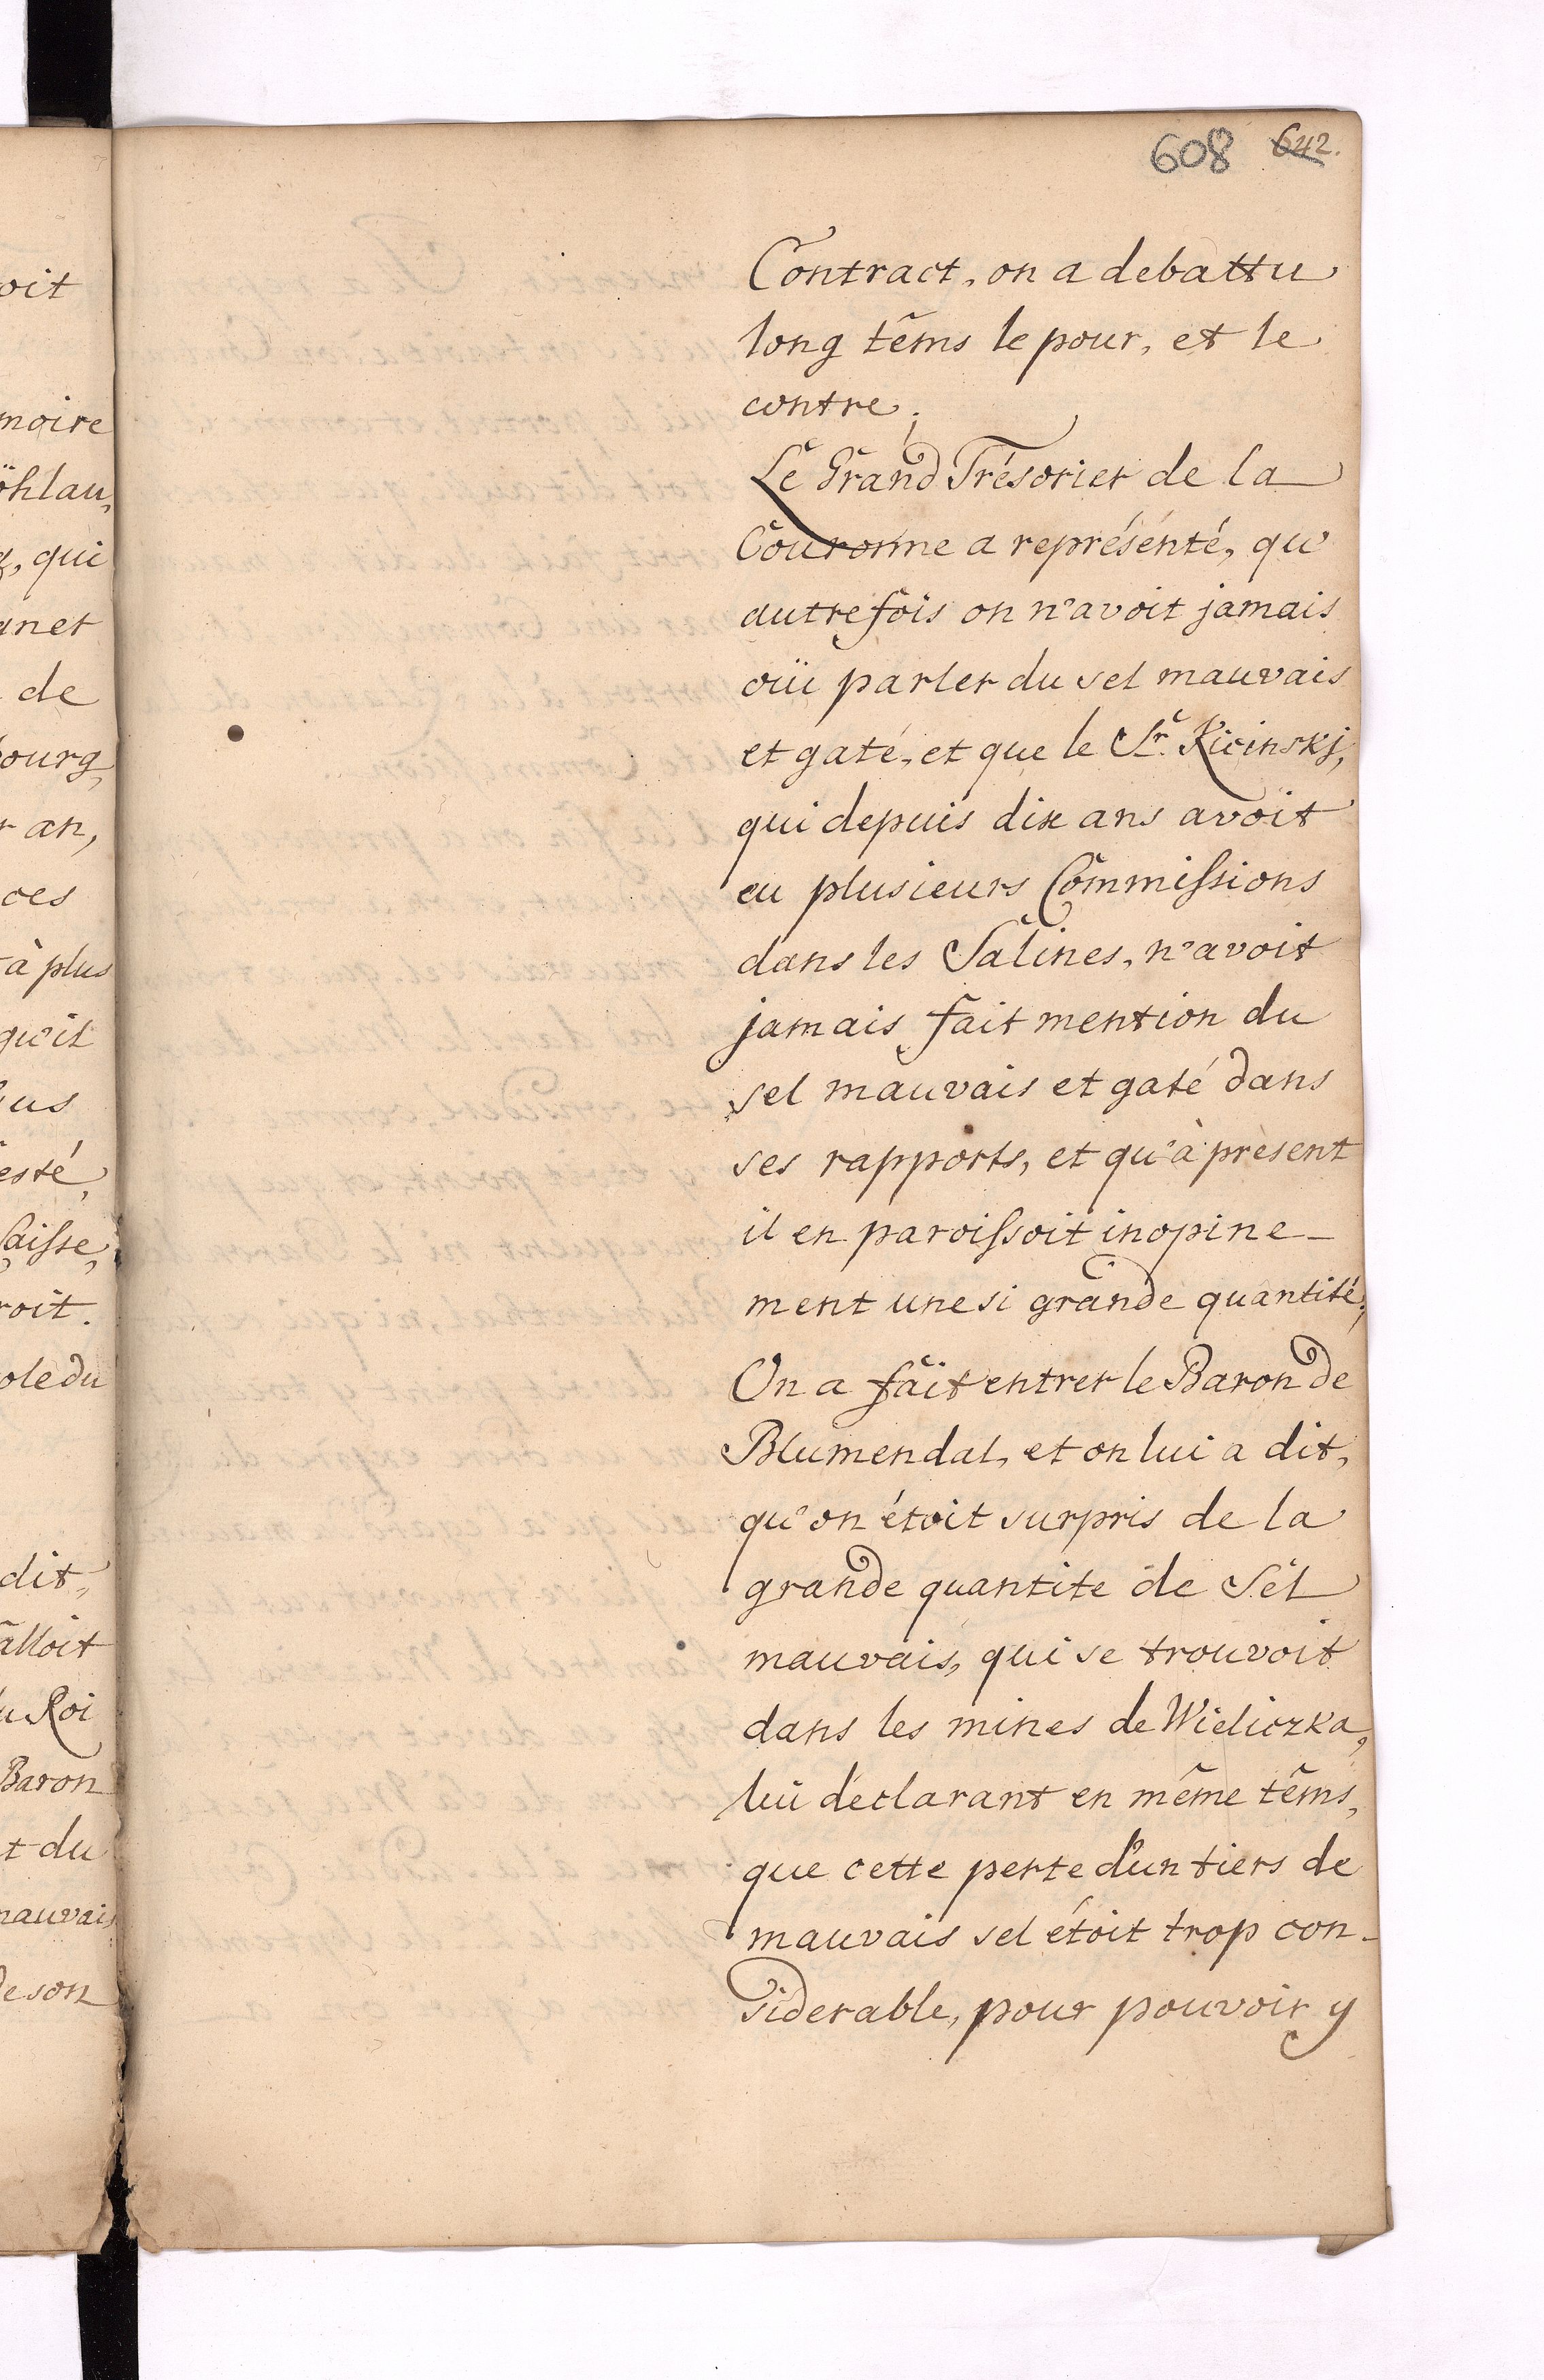 608 642.
Contract, on a debattu
long têms le pour, et le
contre.
Le Grand Trésorier de la
Couronne a représénté, qu'
autrefois on n'avoit jamais
oüi parler du sel mauvais
et gaté, et que le Sr. Kicinskj,
qui depuis dix ans avoit
eu plusieurs Commissions
dans les Salines, n'avoit
jamais fait mention du
sel mauvais et gaté dans
ses rapports, et qu'à present
il en paroissoit inopine-
ment une si grande quantité,
On a fait entrer le Baron de
Blumendal, et on lui a dit,
qu'on étoit surpris de la
grande quantite de Sel
mauvais, qui se trouvoit
dans les mines de Wieliczka,
lui déclarant en même têms,
que cette perte d'un tiers de
mauvais sel étoit trop con-
siderable, pour pouvoir y
oit
moire
öhlau,
, qui
aner
de
bourg,
r an,
ces
à plus
qu'il
us
esté,
Caisse,
roit.
ole du
dit,
alloit
u Roi
Baron
t du
mauvais
de son